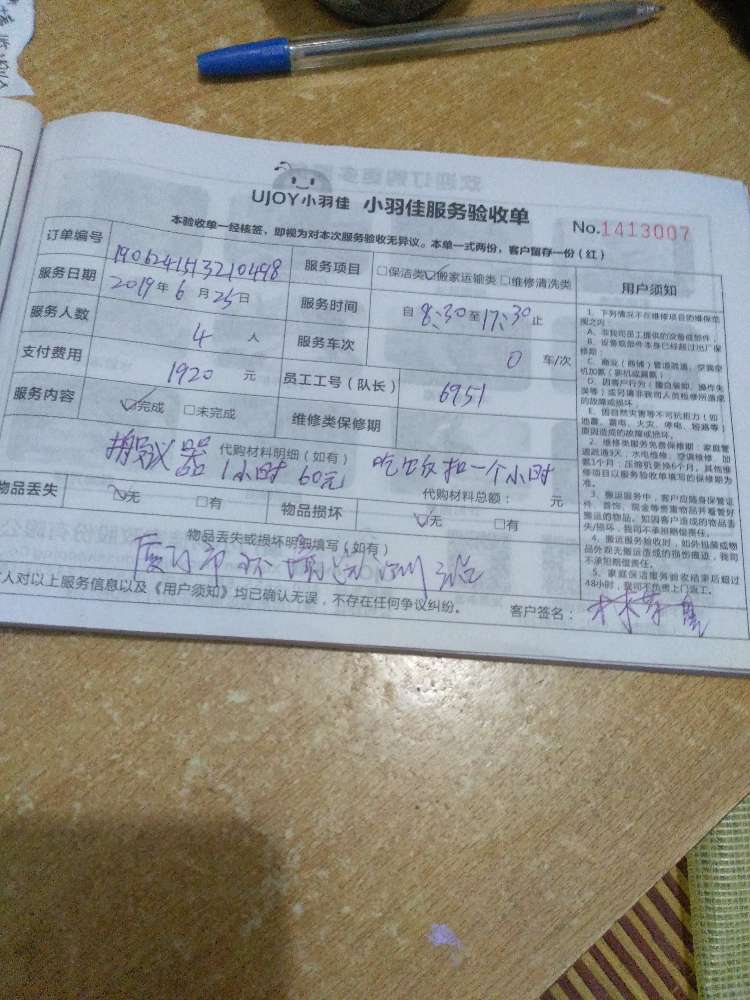 UJOY小羽佳 小羽佳服务验收单
No.1413007
本验收单一经核签，即视为对本次服务验收无异议。本单一式两份，客户留存一份（红）
订单编号 1906241513210498 服务项目 □保洁类 ☑搬家运输类 □维修清洗类
服务日期 2019年6月25日 服务时间 自8:30至17:30止
服务人数 4人 服务车次 0车/次
支付费用 1920元 员工工号（队长） 6951
服务内容 ☑完成 □未完成 维修类保修期
代购材料明细（如有）
搬仪器 1小时 60元 吃饭扣一个小时
代购材料总额： 元
物品丢失 ☑无 □有 物品损坏 ☑无 □有
物品丢失或损坏明细填写（如有）
厦门市环境监测站
人对以上服务信息以及《用户须知》均已确认无误，不存在任何争议纠纷。 客户签名：
用户须知
1、下列情况不在维修项目的维保范围之内：
A、非我司员工提供的设备或部件；
B、设备或部件本身已经超过出厂保修期；
C、商业（商博）管道疏通，空调拿机加氟（新机或漏氟）；
D、因客户行为（擅自装卸、操作失误等）或另请非我司人员检修所造成的故障或损坏；
E、因自然灾害等不可抗拒力（如地震、雷电、火灾、停电、短路等）原因造成的故障或损坏。
2、维修类服务免费保修期：家庭管道疏通9天，水电维修、空调维修、加氨1个月；压缩机更换6个月，其他维修项目以服务验收单填写的保修期为准。
3、搬运服务中，客户应随身保管证件、首饰、现金等贵重物品并看管好搬运的物品。如因客户造成的物品丢失/损坏，我司不承担赔偿责任。
4、搬运服务验收时，如外包装或物品外观无搬运造成的损伤痕迹，我司不承担赔偿责任。
5、家庭保洁服务验收结束后超过48小时，我司不负责上门返工。